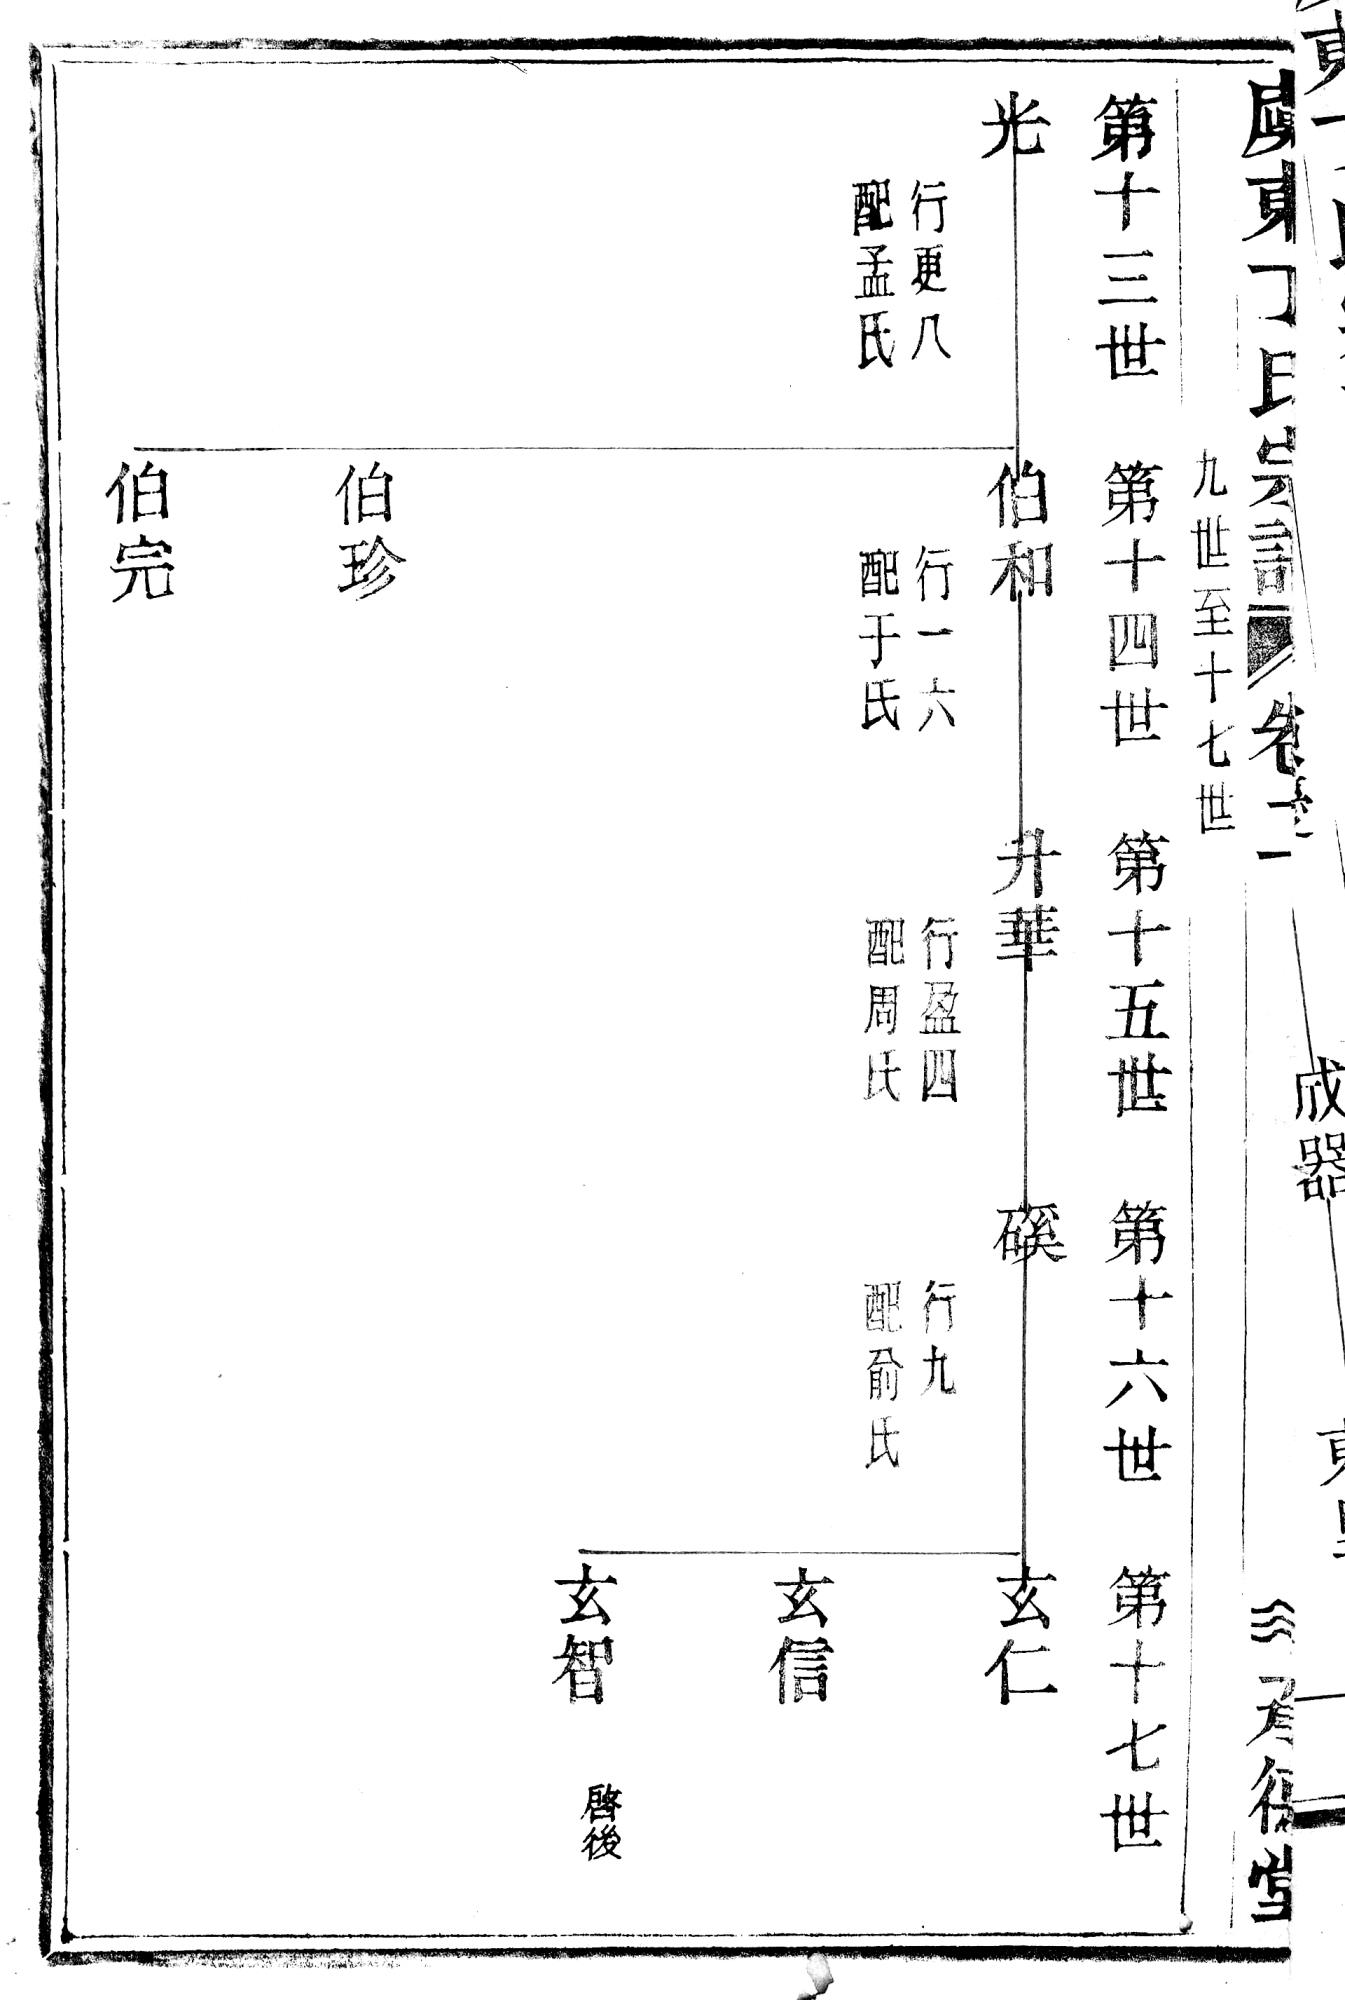 東丁氏宗譜 卷一
九世至十七世
第十三世 第十四世 第十五世 第十六世 第十七世
光
行更八
配孟氏
伯和
行一六
配于氏
伯珍
伯完
升華
行盈四
配周氏
磎
行九
配俞氏
玄仁
玄信
玄智
啓後
成器